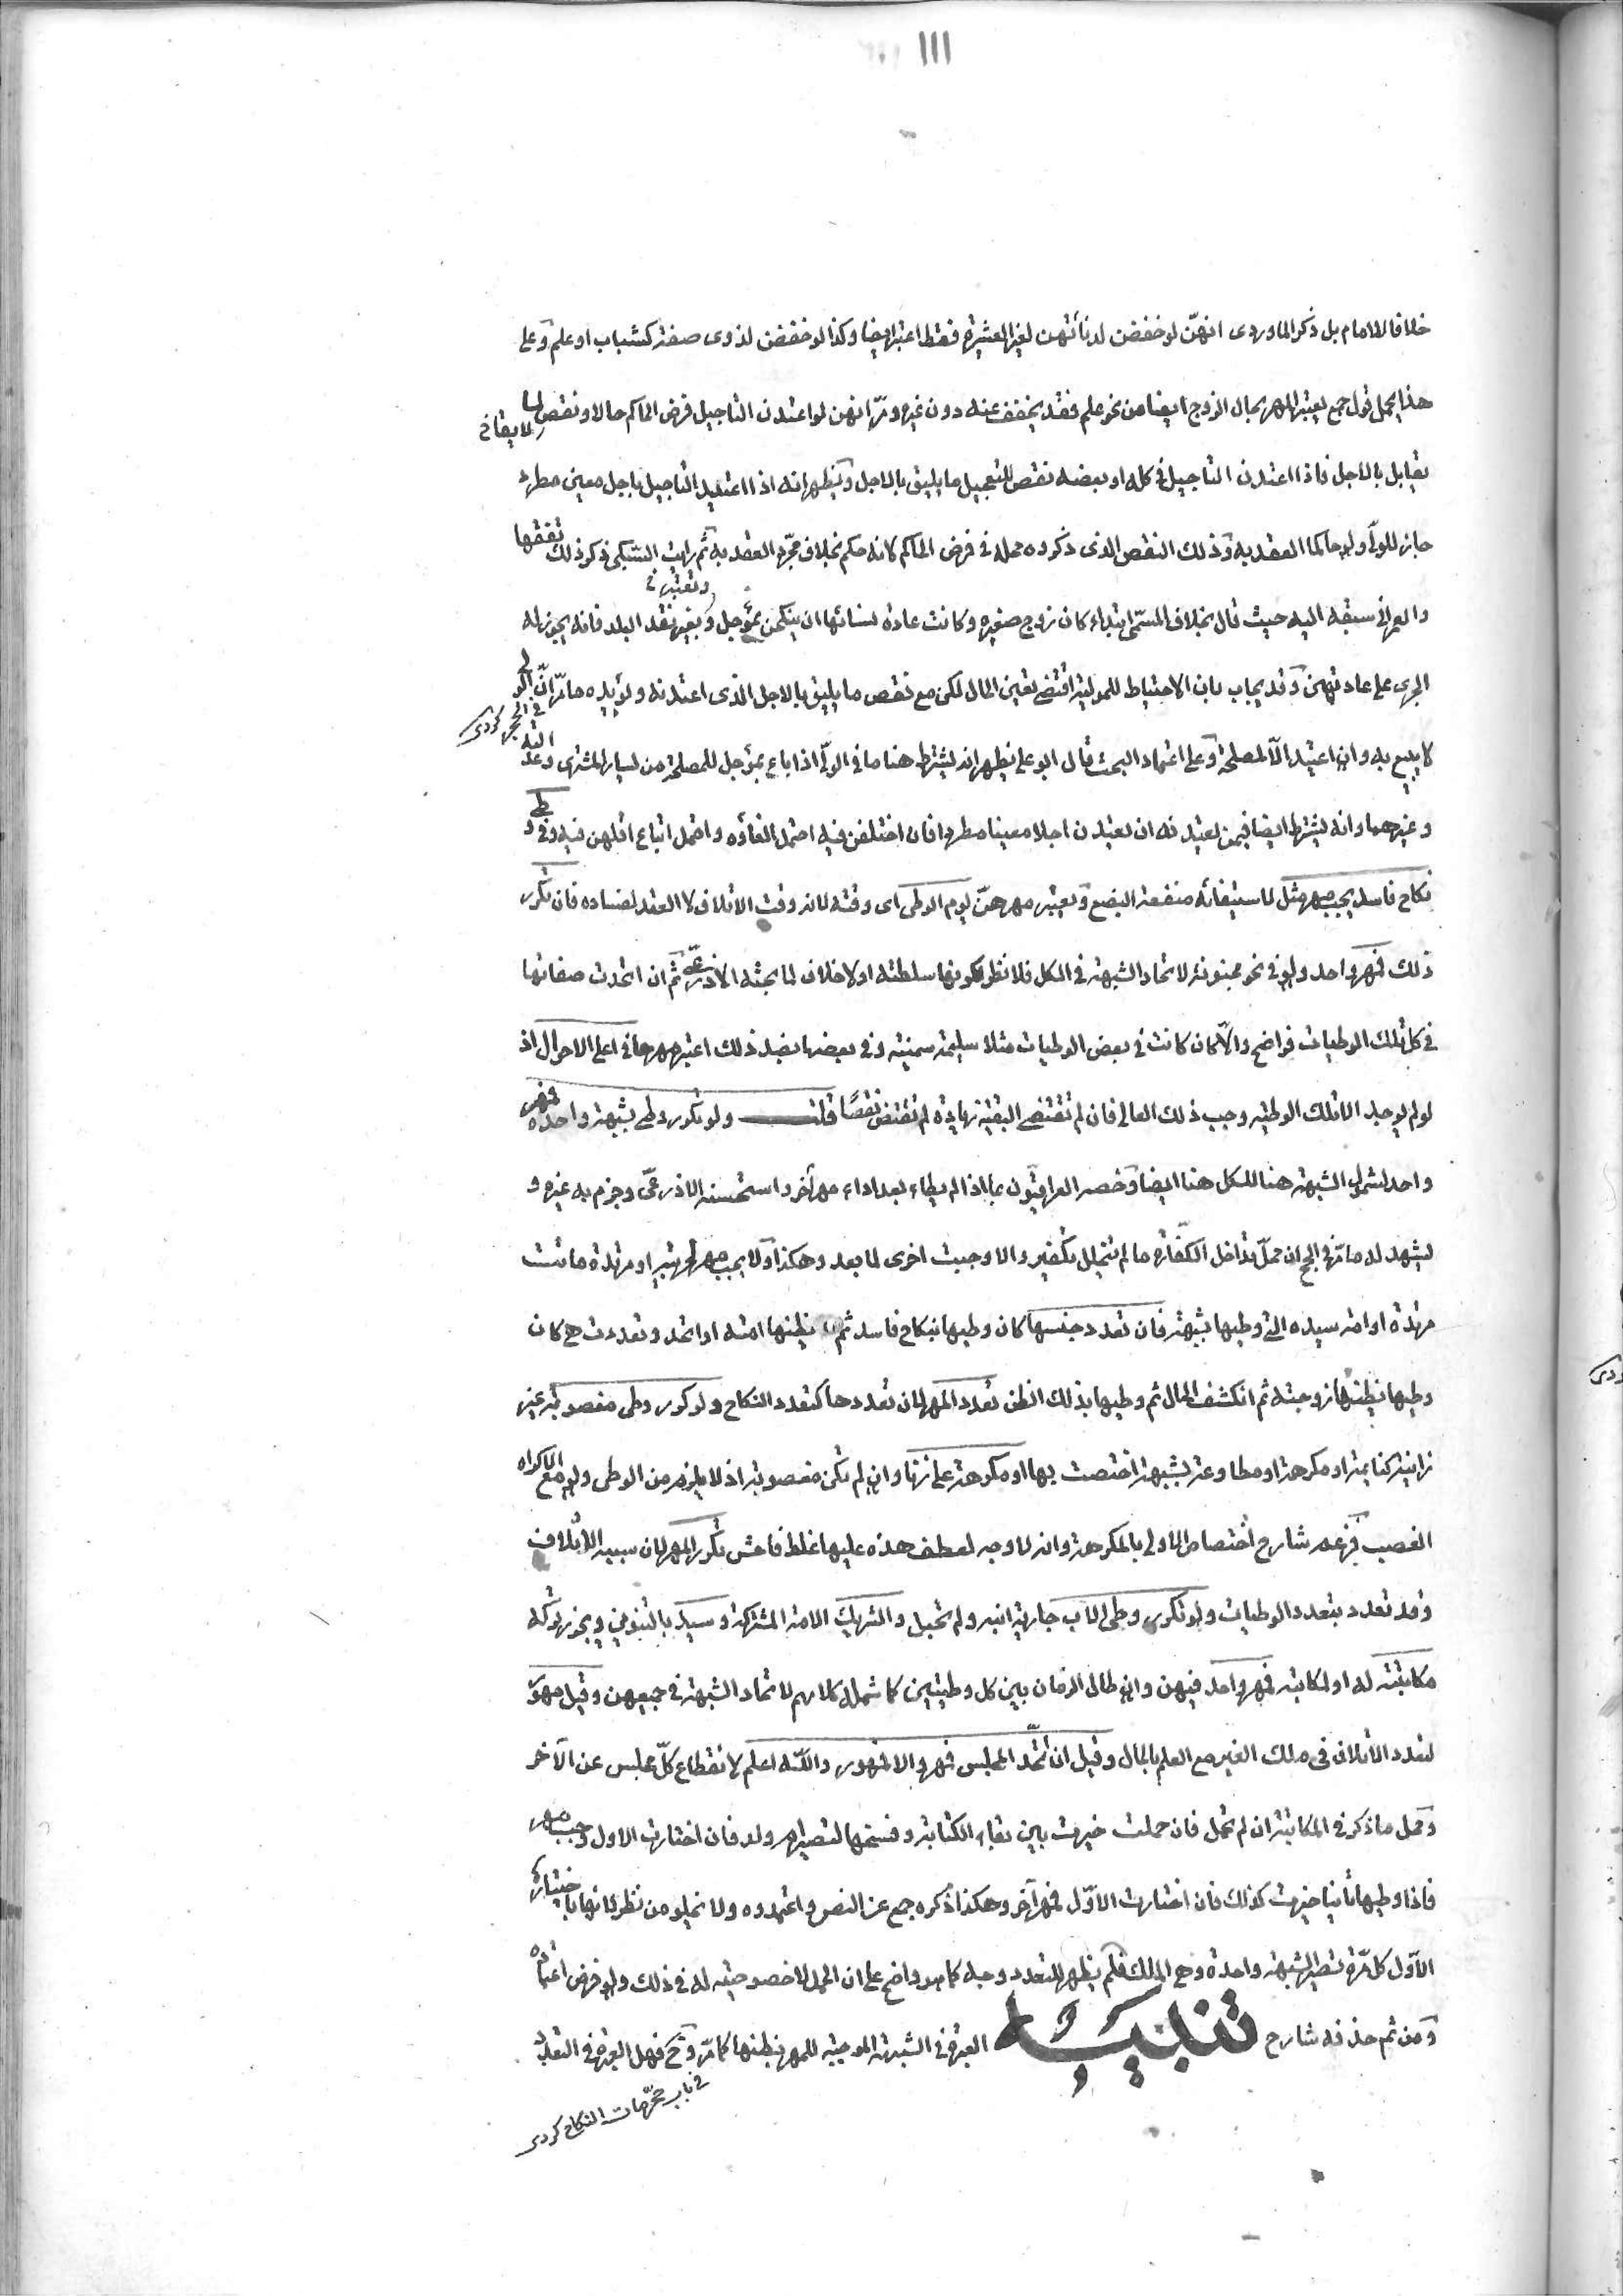 ١١١
خلافا للامام بل ذكر الماوردى انهنّ لو خفضن لدنائتهن لغير العشيرة فقط اعتبر ايضا وكذا لو خفضن لذوى صفة كشباب او علم وعلى
هذا يحمل قول جمع يعتبر المهر بحال الزوج ايضا من نحو علم فقد يخفف عنه دون غيره ومرّ انهن لو اعتدن التاجيل فرض الحاكم حالا ونقص لما
يقابل بالاجل فاذا اعتدن التاجيل فى كله او بعضه نقص للتعجيل ما يليق بالاجل ويظهر انه اذا اعتيد التاجيل باجل معين مطرد
جاز للولى ولو حاكما العقد به وذلك النقص الذى ذكروه محله فى فرض الحاكم لانه حكم بخلاف مجرد العقد به ثم رايت السبكى ذكر ذلك تفقها
والعمرانى سبقه اليه حيث قال بخلاف المسمّى ابتداء كان زوج صغيرة وكانت عادة نسائها ان ينكحن بمؤجل وبغير نقد البلد فانه يجوز له
الجرى على عادتهن وقد يجاب بان الاحتياط للمولية اقتضى تعين الحال لكن مع نقص ما يليق بالاجل الذى اعتدنه ويؤيده ما مرّ انّ الولى
لا يبيع به وان اعتيد الّا لمصلحة وعلى اعتماد البحث قال ابو على يظهر انه يشترط هنا ما فى الولىّ اذا باع بمؤجل للمصلحة من يسار المشترى وعدالته
وغيرهما وانه يشترط ايضا فيمن يعتيد نه ان يعتيدن اجلا معينا مطردا فان اختلفن فيه احتمل الغاؤه واحتمل اتباع اقلهن فيه وفى وطى
نكاح فاسد يجب مهر مثل لاستيفائه منفعة البضع ويعتبر مهرهنّ يوم الوطى اى وقته لانه وقت الاتلاف لا العقد لفساده فان تكرر
ذلك فمهر واحد ولو فى نحو مجنونة لاتحاد الشبهة فى الكل فلا نظر لكونها سلطته او لا خلافا لما بحثه الاذرعىّ ثم ان اتحدت صفاتها
فى كل تلك الوطيات فواضح والّا كان كانت فى بعض الوطيات مثلا سليمة سمينة وفى بعضها بضد ذلك اعتبر مهرها فى اعلى الاحوال اذ
لو لم يوجد الا تلك الوطية وجب ذلك العالى فان لم تقتضى البقية زيادة لم تقتض نقصًا قلت ولو تكرر وطى بشبهة واحدة فمهر
واحد لشمول الشبهة هنا للكل هنا ايضا وخصه العراقيّون بما اذا لم يطاء بعد اداء مهر آخر واستحسنه الاذرعىّ وجزم به غيره و
يشهد له ما مرّ فى الحج ان محلّ تداخل الكفّارة ما لم يتخلل تكفير والا وجبت اخرى لما بعد وهكذا ولا يجب مهر لحربية او مرتدة ماتت
مرتدة او امة سيده التى وطيها بشبهة فان تعدد جنسها كان وطيها بنكاح فاسد ثم يظنها امته او اتحد وتعددت هى كان
وطيها يظنّها زوجته ثم انكشف الحال ثم وطيها بذلك الظن تعدد المهر لان تعددها كتعدد النكاح ولو كرر وطى مغصوبة غير
زانية كنايمة او مكرهة او مطاوعة بشبهة اختصت بها او مكرهة على زنا وان لم تكن مغصوبة اذ لا يلزم من الوطى ولو مع الاكراه
الغصب فزعم شارح اختصاص الاولى بالمكرهة وانه لا وجه لعطف هذه عليها غلط فاحش تكرر المهر لان سببه الاتلاف
وقد تعدد بتعدد الوطيات ولو تكرر وطى الاب جارية ابنه ولم تحبل والشريك الامة المشتركة وسيد بالتنوين ويجوز تركه
مكاتبته له او لمكاتبه فمهر واحد فيهن وان طال الزمان بين كل وطيتين كما شمله كلامهم لاتحاد الشبهة فى جميعهن وقيل مهور
لتعدد الاتلاف فى ملك الغير مع العلم بالحال وقيل ان اتّحد المجلس فمهر والا فمهور والله اعلم لانقطاع كلّ مجلس عن الآخر
ومحل ما ذكر فى المكاتبة ان لم تحمل فان حملت خيرت بين بقاء الكتابة وفسخها لتصير ام ولد فان اختارت الاول وجب مهر
فاذا وطيها ثانيا خيرت كذلك فان اختارت الاوّل فمهر آخر وهكذا ذكره جمع عن النص واعتمدوه ولا تخلو من نظر لانها باختيارها
الاوّل كل مرّة تصير الشبهة واحدة وهى الملك فلم يظهر للتعدد وجه كما هو واضح على ان الحمل لا خصوصية له فى ذلك ولو فرض اعتماده
ومن ثم حذفه شارح تنبيه العبرة فى الشبهة الموجبة للمهر بظنها كما مرّ وحينئذ فهل العبرة فى التعدد
فى باب محرّمات النكاح كردى